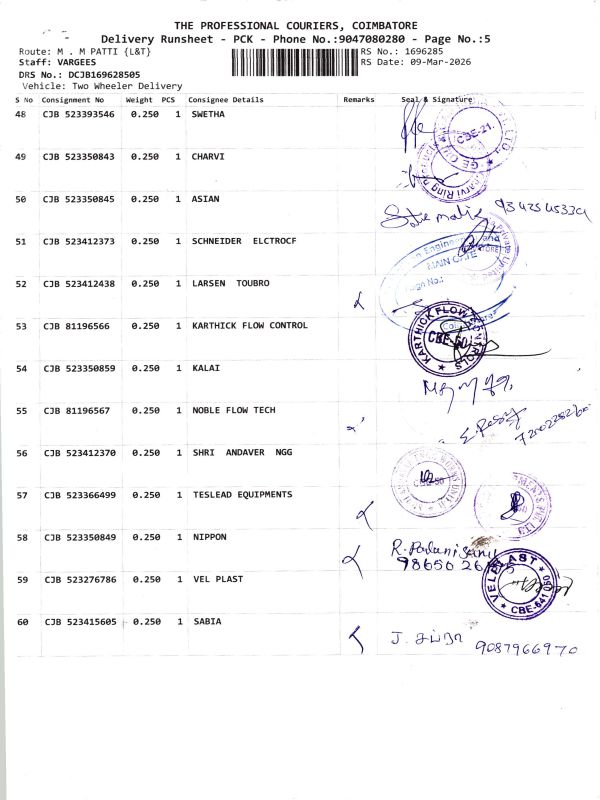 THE PROFESSIONAL COURIERS, COIMBATORE
Delivery Runsheet - PCK - Phone No.:9047080280 - Page No.:5
Route: M . M PATTI {L&T} RS No.: 1696285
Staff: VARGEES RS Date: 09-Mar-2026
DRS No.: DCJB169628505
Vehicle: Two Wheeler Delivery
S No Consignment No Weight PCS Consignee Details Remarks Seal & Signature
48 CJB 523393546 0.250 1 SWETHA
CBE-21.
49 CJB 523350843 0.250 1 CHARVI
50 CJB 523350845 0.250 1 ASIAN
51 CJB 523412373 0.250 1 SCHNEIDER ELCTROCF
MAIN GATE
52 CJB 523412438 0.250 1 LARSEN TOUBRO
53 CJB 81196566 0.250 1 KARTHICK FLOW CONTROL
KARTHICK FLOW CONTROLS
54 CJB 523350859 0.250 1 KALAI
55 CJB 81196567 0.250 1 NOBLE FLOW TECH
56 CJB 523412370 0.250 1 SHRI ANDAVER NGG
57 CJB 523366499 0.250 1 TESLEAD EQUIPMENTS
58 CJB 523350849 0.250 1 NIPPON
R. Palanisamy
59 CJB 523276786 0.250 1 VEL PLAST
VEL PLAST
CBE-641 050
60 CJB 523415605 0.250 1 SABIA
J. சப்றா 9087966970